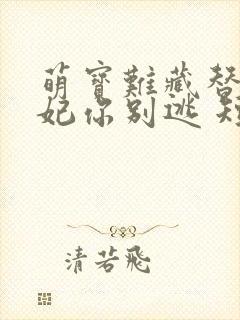 萌寶難藏替
妃你別逃 短
清若飛